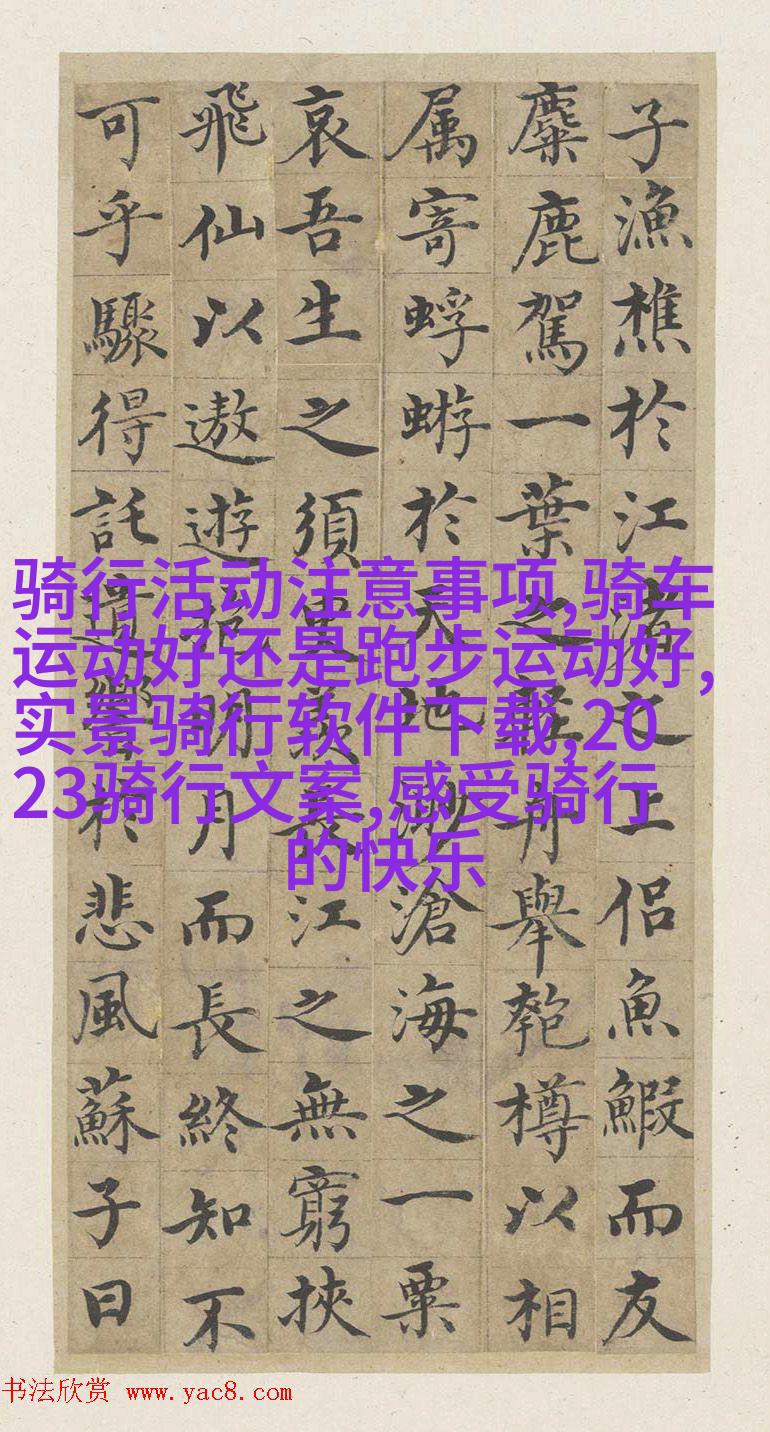 子漁樵於江渚之上侶魚鰕而友
麋鹿駕一葉之輕舟舉匏樽以相
属寄蜉蝣於天地渺滄海之一粟
哀吾生之須臾羨長江之無窮挾
飛仙以遨遊抱明月而長終知不
可乎驟得託遺響於悲風蘇子曰
骑行活动注意事项,骑车
运动好还是跑步运动好,
实景骑行软件下载,20
23骑行文案,感受骑行
的快乐
书法欣赏 www.yac8.com